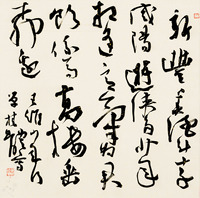 新豐美酒斗十千
咸陽遊俠多少年
相逢意氣為君
飲係馬高樓垂
柳邊
王維少年行